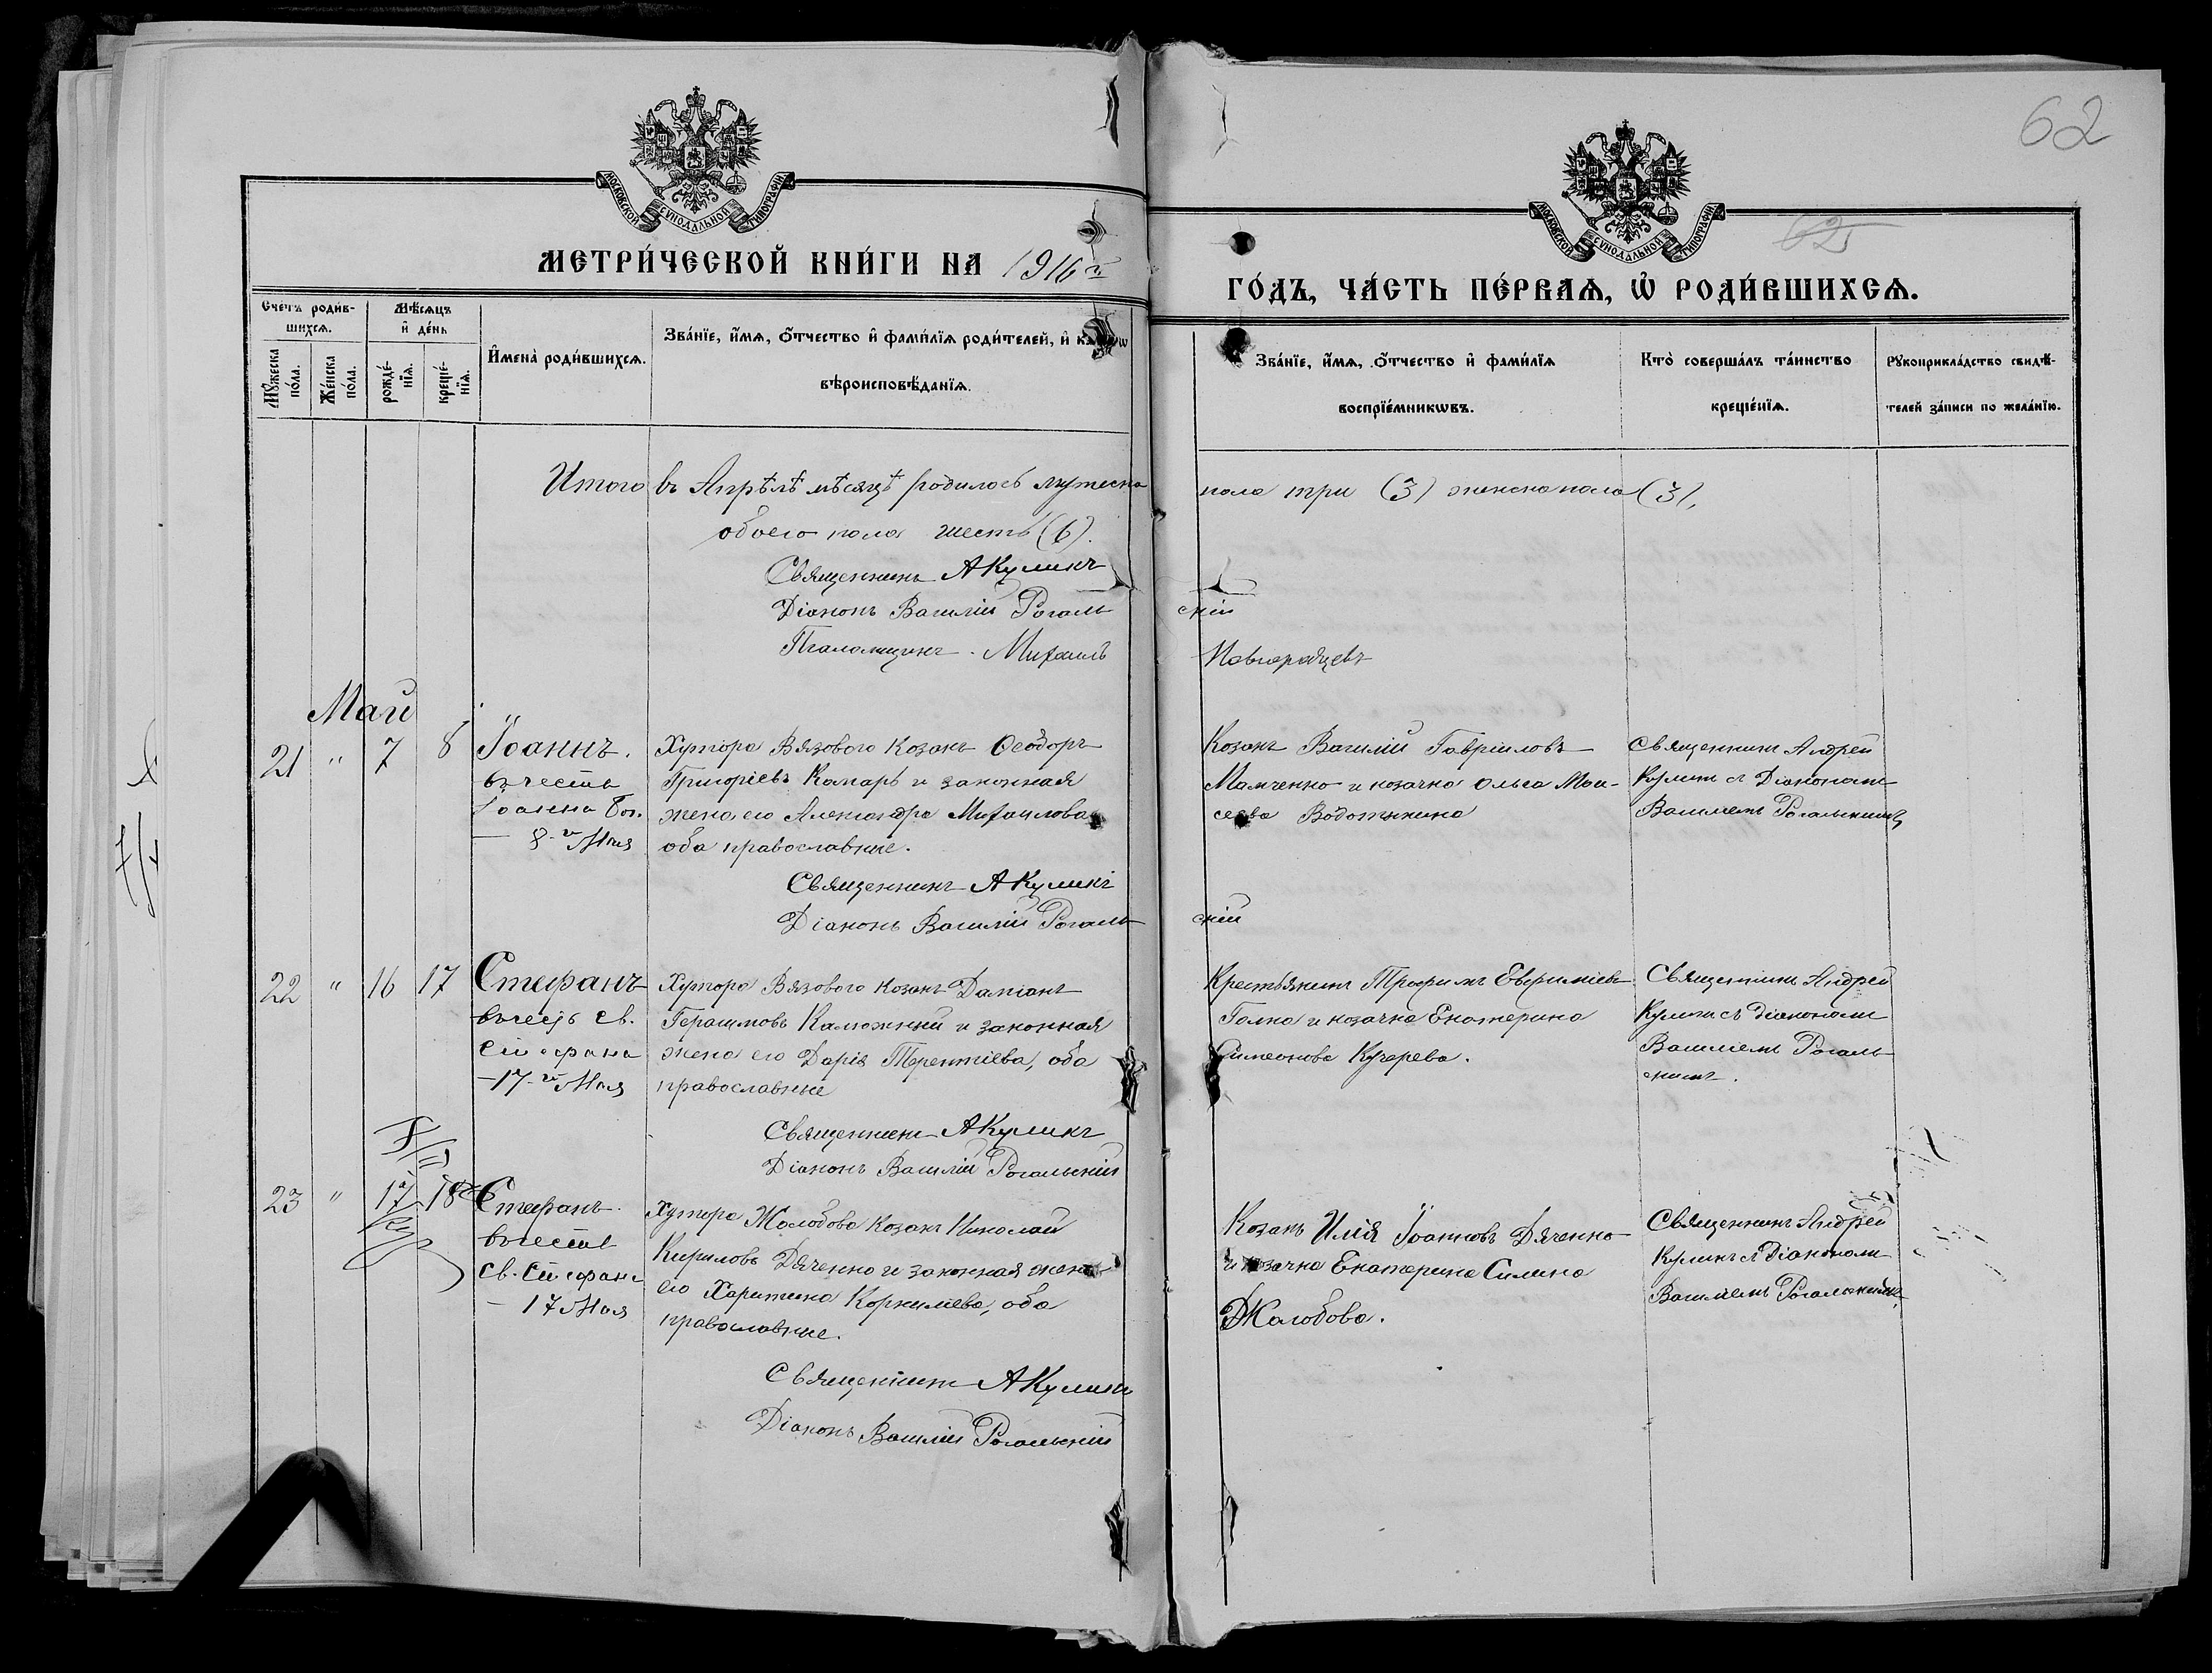 62
МОСКОВСКОЙ СѴНОДАЛЬНОЙ ТИПОГРАФІИ
МОСКОВСКОЙ СѴНОДАЛЬНОЙ ТИПОГРАФІИ
62
МЕТРИ́ЧЕСКОЙ КНИ́ГИ НА 1916 й
ГО́ДЪ, ЧА́СТЬ ПЕ́РВАѦ, Ѽ РОДИ́ВШИХСѦ.
Счетъ роди́в-
шихсѧ.
Мѣ́сѧцъ
и҆ де́нь
Мꙋ́жеска
по́ла.
Же́нска
по́ла.
рожде́-
нїѧ.
креще́-
нїѧ.
И҆мена̀ роди́вшихсѧ.
Зва́нїе, и҆́мѧ, ѻ҆́тчество и҆ фами́лїѧ роди́телей, и҆
вѣроисповѣ́данїѧ.
Зва́нїе, и҆́мѧ, ѻ҆́тчество и҆ фами́лїѧ
воспрїе́мникѡвъ.
Кто̀ соверша́лъ та́инство
креще́нїѧ.
Рꙋкоприкла́дство свидѣ́-
телей за́писи по жела́нїю.
Итого въ Апрѣлѣ мѣсяцѣ родилось мужеска
пола три (3) женска пола (3),
обоего пола шесть (6).
Священникъ А Куликъ
Діаконъ Василій Рогаль
скій
Псаломщикъ. Михаилъ
Новгородцевъ
Май
21 " 7 8
Іоаннъ.
въ честь
Іоанна Бог.
— 8-го Мая
Хутора Вязового козакъ Ѳеодоръ
Григоріевъ Комаръ и законная
жена его Александра Михаилова
оба православные.
Священникъ А Куликъ
Діаконъ Василій Рогаль
скій
Козакъ Василій Гавріиловъ
Мамченко и козачка Ольга Мои-
сеева Водотыкина
Священникъ Андрей
Куликъ съ Діакономъ
Василіемъ Рогальскимъ
22 " 16 17
Стефанъ
въ честь св.
Стефана
— 17-го Мая
Хутора Вязового козакъ Даміанъ
Герасимовъ Калюжный и законная
жена его Дарія Терентіева, оба
православные
Священникъ А Куликъ
Діаконъ Василій Рогальскій
Крестьянинъ Трофимъ Евфиміевъ
Голка и козачка Екатерина
Симеонова Кучерева.
Священникъ Андрей
Куликъ съ діакономъ
Василіемъ Рогаль-
скимъ.
23 " 17 18
Стефанъ.
въ честь
Св. Стефана
— 17 Мая
Хутора Жолобова козакъ Николай
Кириловъ Дяченко и законная жена
его Харитина Корниліева, оба
православные.
Священникъ А Куликъ
Діаконъ Василій Рогальскій
Козакъ Илія Іоанновъ Дяченко
и козачка Екатерина Силина
Жолобова.
Священникъ Андрей
Куликъ съ Діакономъ
Василіемъ Рогальскимъ